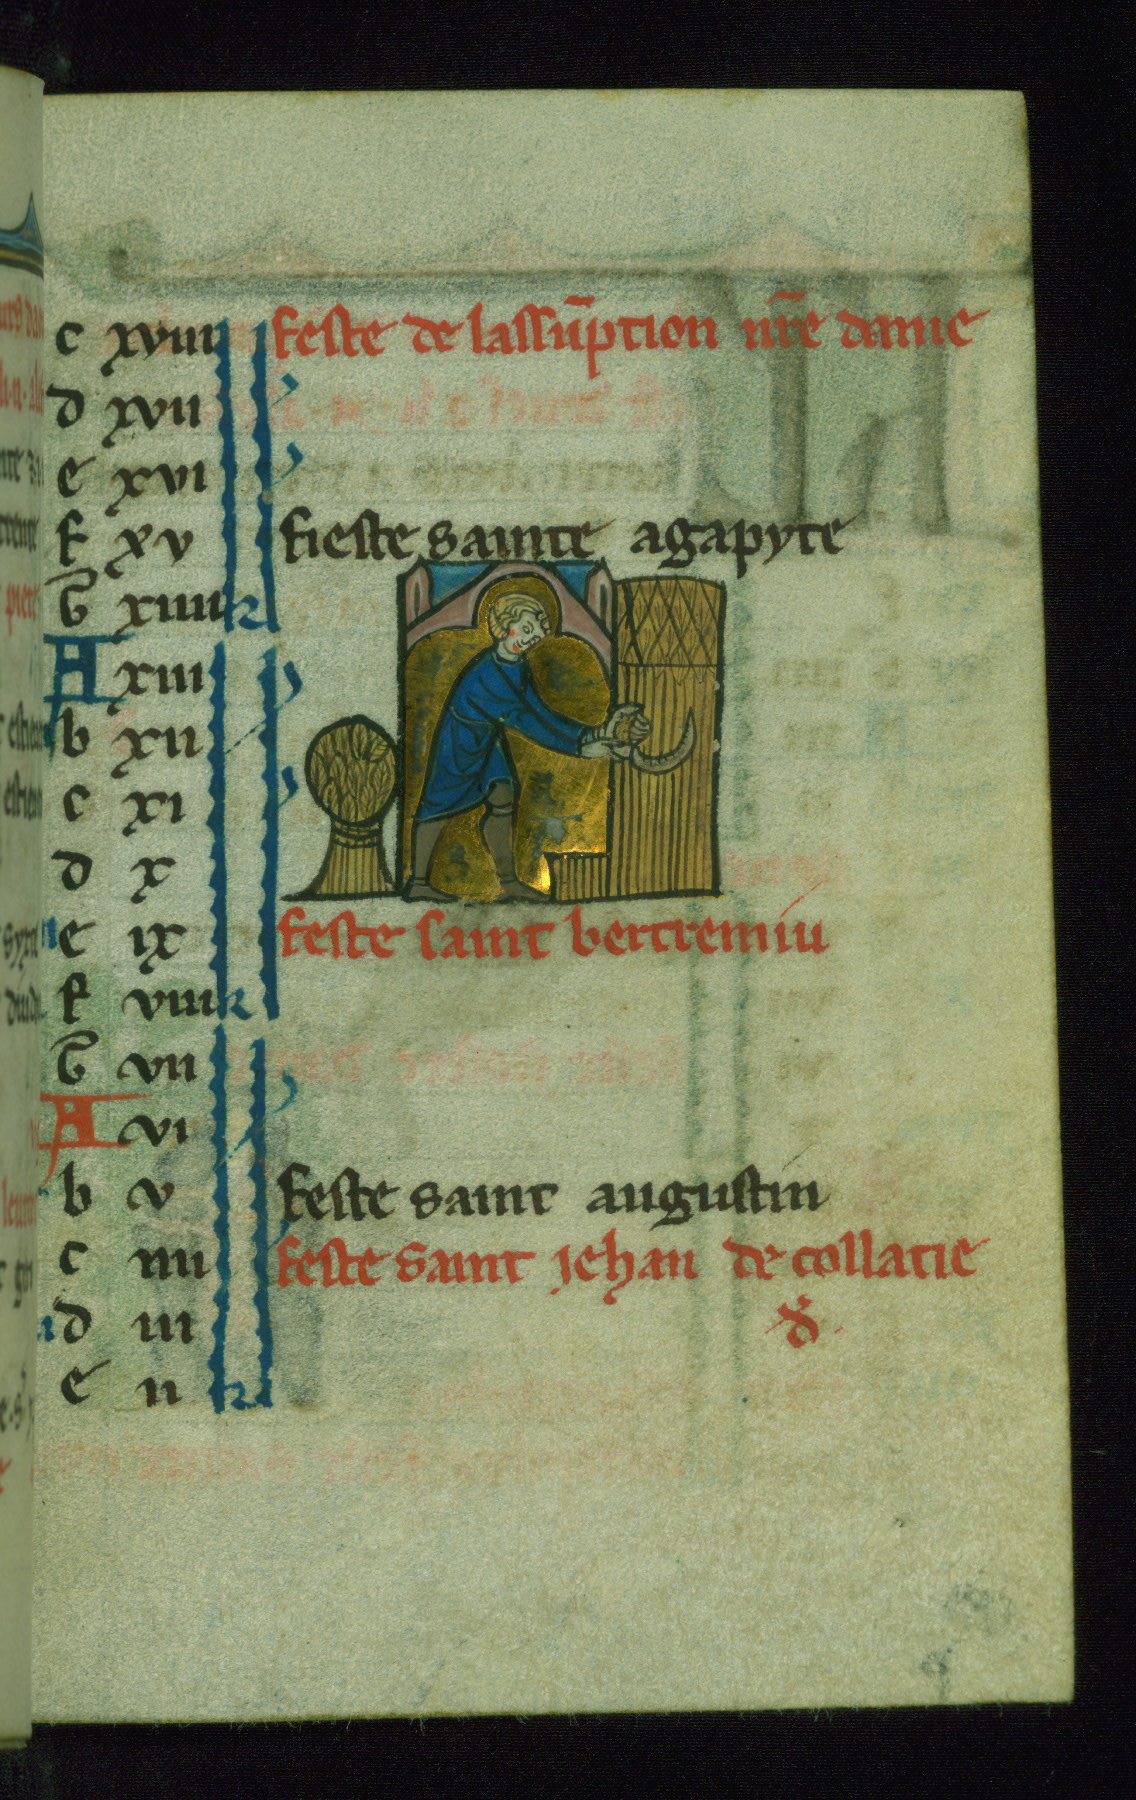 c xviii kl feste de lassūption nr̄e dame
d xvii kl
e xvi kl
f xv kl fieste sainte agapyte
G xiiii kl
A xiii kl
b xii kl
c xi kl
d x kl
e ix kl feste saint bertremiu
f viii kl
G vii kl
A vi kl
b v kl feste saint augustin
c iiii kl feste saint jehan de collatie
d iii kl
e ii kl